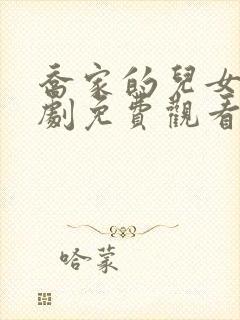 喬家的兒女
劇免費觀看
哈蒙